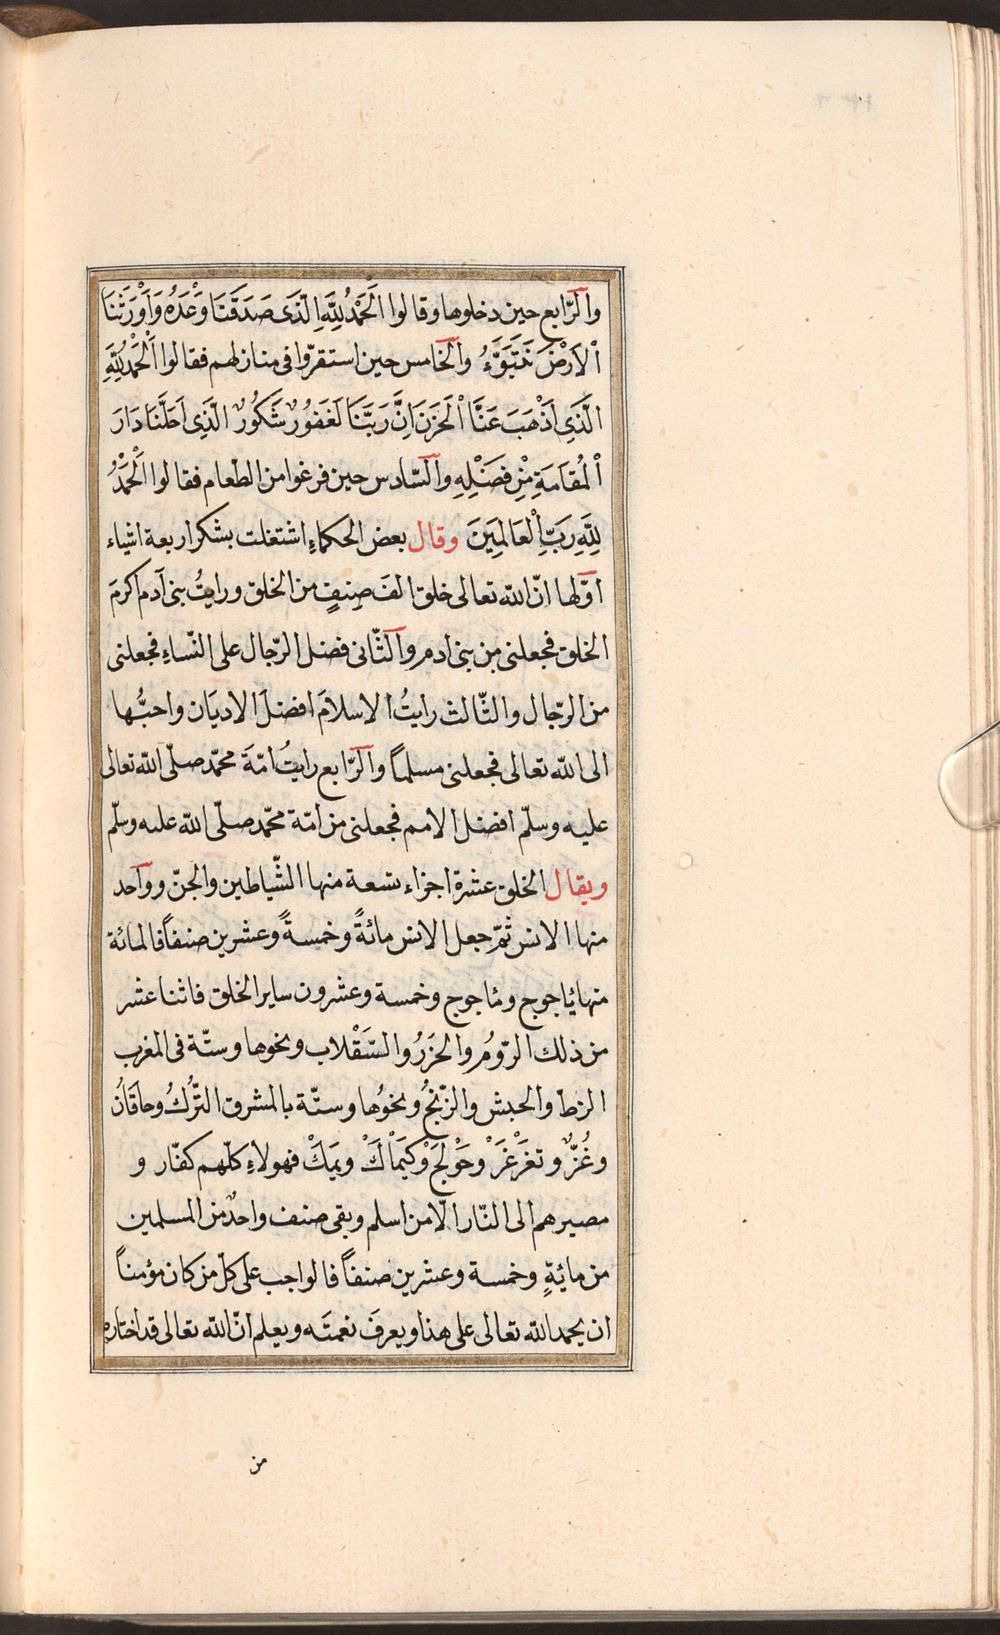 والرّابع حين دخلوها وقالوا اَلْحَمْدُ لِلَّهِ الَّذِى صَدَقَنَا وَعْدَهُ وَاَوْرَثَنَا
اْلاَرْضَ نَتَبَوَّءُ والخامس حين استقرّوا فى منازلهم فقالوا اَلْحَمْدُ لِلَّهِ
الَّذِى اَذْهَبَ عَنَّا اْلحَزَنَ اِنَّ رَبَّنَا لَغَفُورٌ شَكُورٌ الَّذِى اَحَلَّنَا دَارَ
اْلمُقَامَةِ مِنْ فَضْلِهِ والسّادس حين فرغوا من الطّعام فقالوا اَلْحَمْدُ
لِلَّهِ رَبِّ اْلعَالَمِينَ وقال بعض الحكماءِ اشتغلت بشكر اربعة اشياء
اوّلها انّ الله تعالى خلق الفَ صِنفٍ من الخلق ورايتُ بنى آدم اكرمَ
الخلق فجعلنى من بنى ادم والثّانى فضل الرّجال على النّساءِ فجعلنى
من الرّجال والثّالث رايتُ الاسلامَ افضلَ الاديَان واحبُّها
الى الله تعالى فجعلنى مسلماً والرّابع رايتُ امّةَ محمّد صلّى الله تعالى
عليه وسلّم افضل الامم فجعلنى من امّة محمّد صلّى الله عليه وسلّم
ويقال الخلق عشرة اجزاء تسعة منها الشّياطين والجنّ وواحد
منها الانس ثمّ جعل الانس مائةً وخمسةً وعشرين صنفاً فالمائة
منها ياجوج وماجوج وخمسة وعشرون ساير الخلق فاثنا عشر
من ذلك الرّومُ والخَزَرُ والسَّقْلاب ونحوها وستّة فى المغرب
الزطّ والحبش والزّنجُ ونحوُها وستّة بالمشرق التُّركُ وخاقَانُ
وغُزٌّ وتغَزْغَزْ وخَوْلَجْ وَكَيْمَاكْ ويَمَكْ فهولاءِ كلّهم كفّار و
مصيرهم الى النّار الّا من اسلم وبقى صنف واحدٌ من المسلمين
من مايةٍ وخمسة وعشرين صنفاً فالواجب على كلّ من كان مؤمناً
ان يحمد الله تعالى على هذا ويعرفَ نعمتَه ويعلم انّ الله تعالى قد اختاره
من